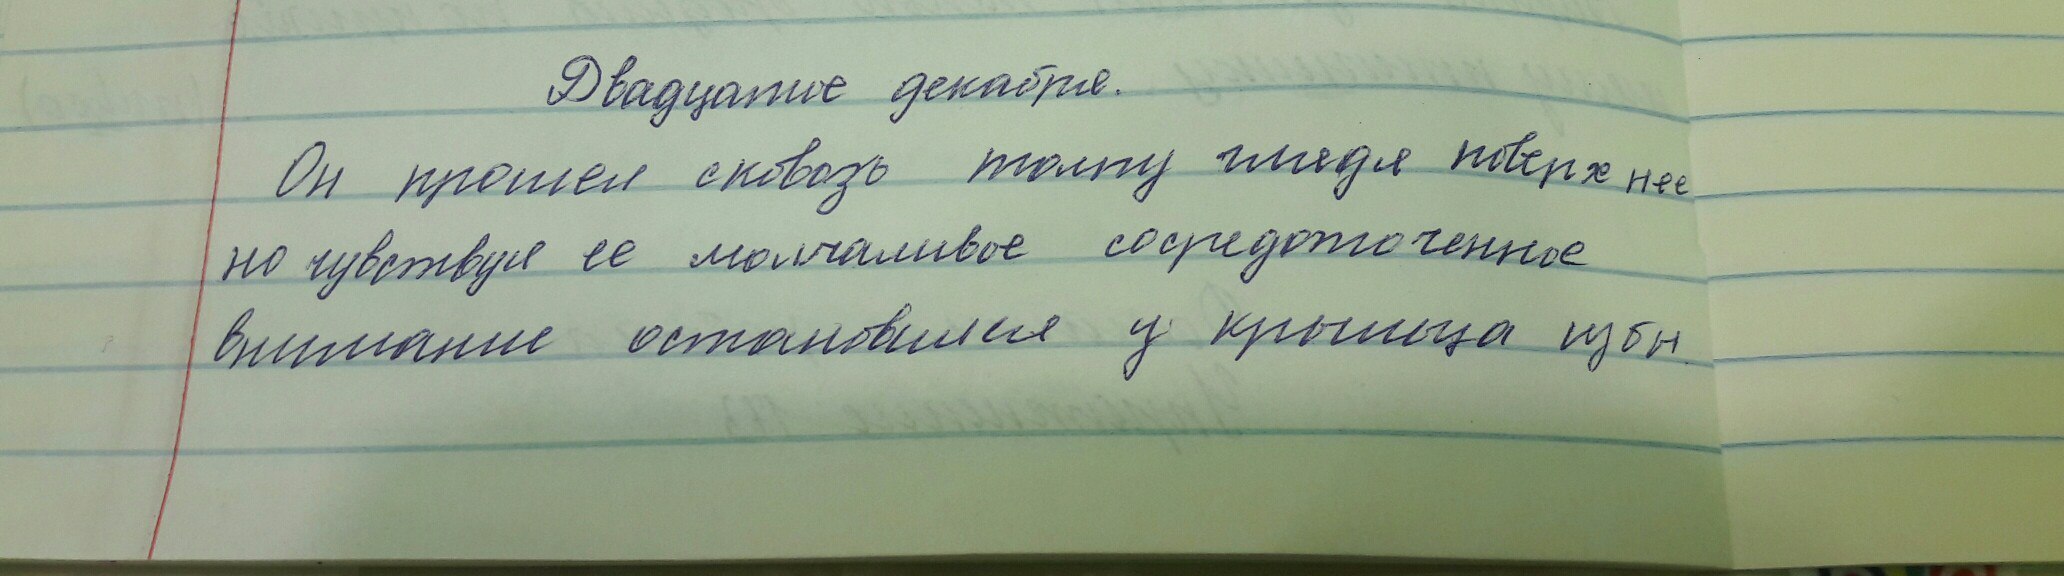 Двадцатое декабря.
Он прошел сквозь толпу глядя поверх нее
но чувствуя ее молчаливое сосредоточенное
внимание остановился у крыльца избы